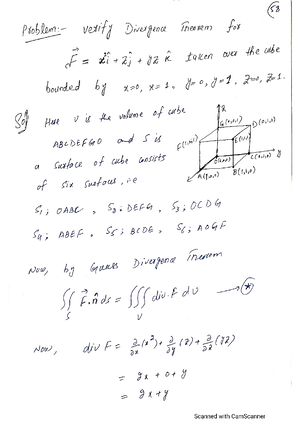 58
Problem:- Verify Divergence Theorem for
F⃗ = x²î + zĵ + yz k̂ taken over the cube
bounded by x=0, x=1, y=0, y=1, z=0, z=1.
Sol Here V is the volume of cube
ABCDEFGO and S is
a surface of cube consists
of six surfaces, i.e
S₁: OABC , S₂: DEFG , S₃: OCDG
S₄: ABEF , S₅: BCDE , S₆: AOGF
Now, by Gauss Divergence Theorem
∬_S F⃗.n̂ ds = ∭_V div.F dv → ⊛
Now, div F = ∂/∂x (x²) + ∂/∂y (z) + ∂/∂z (yz)
= 2x + 0 + y
= 2x + y
Scanned with CamScanner